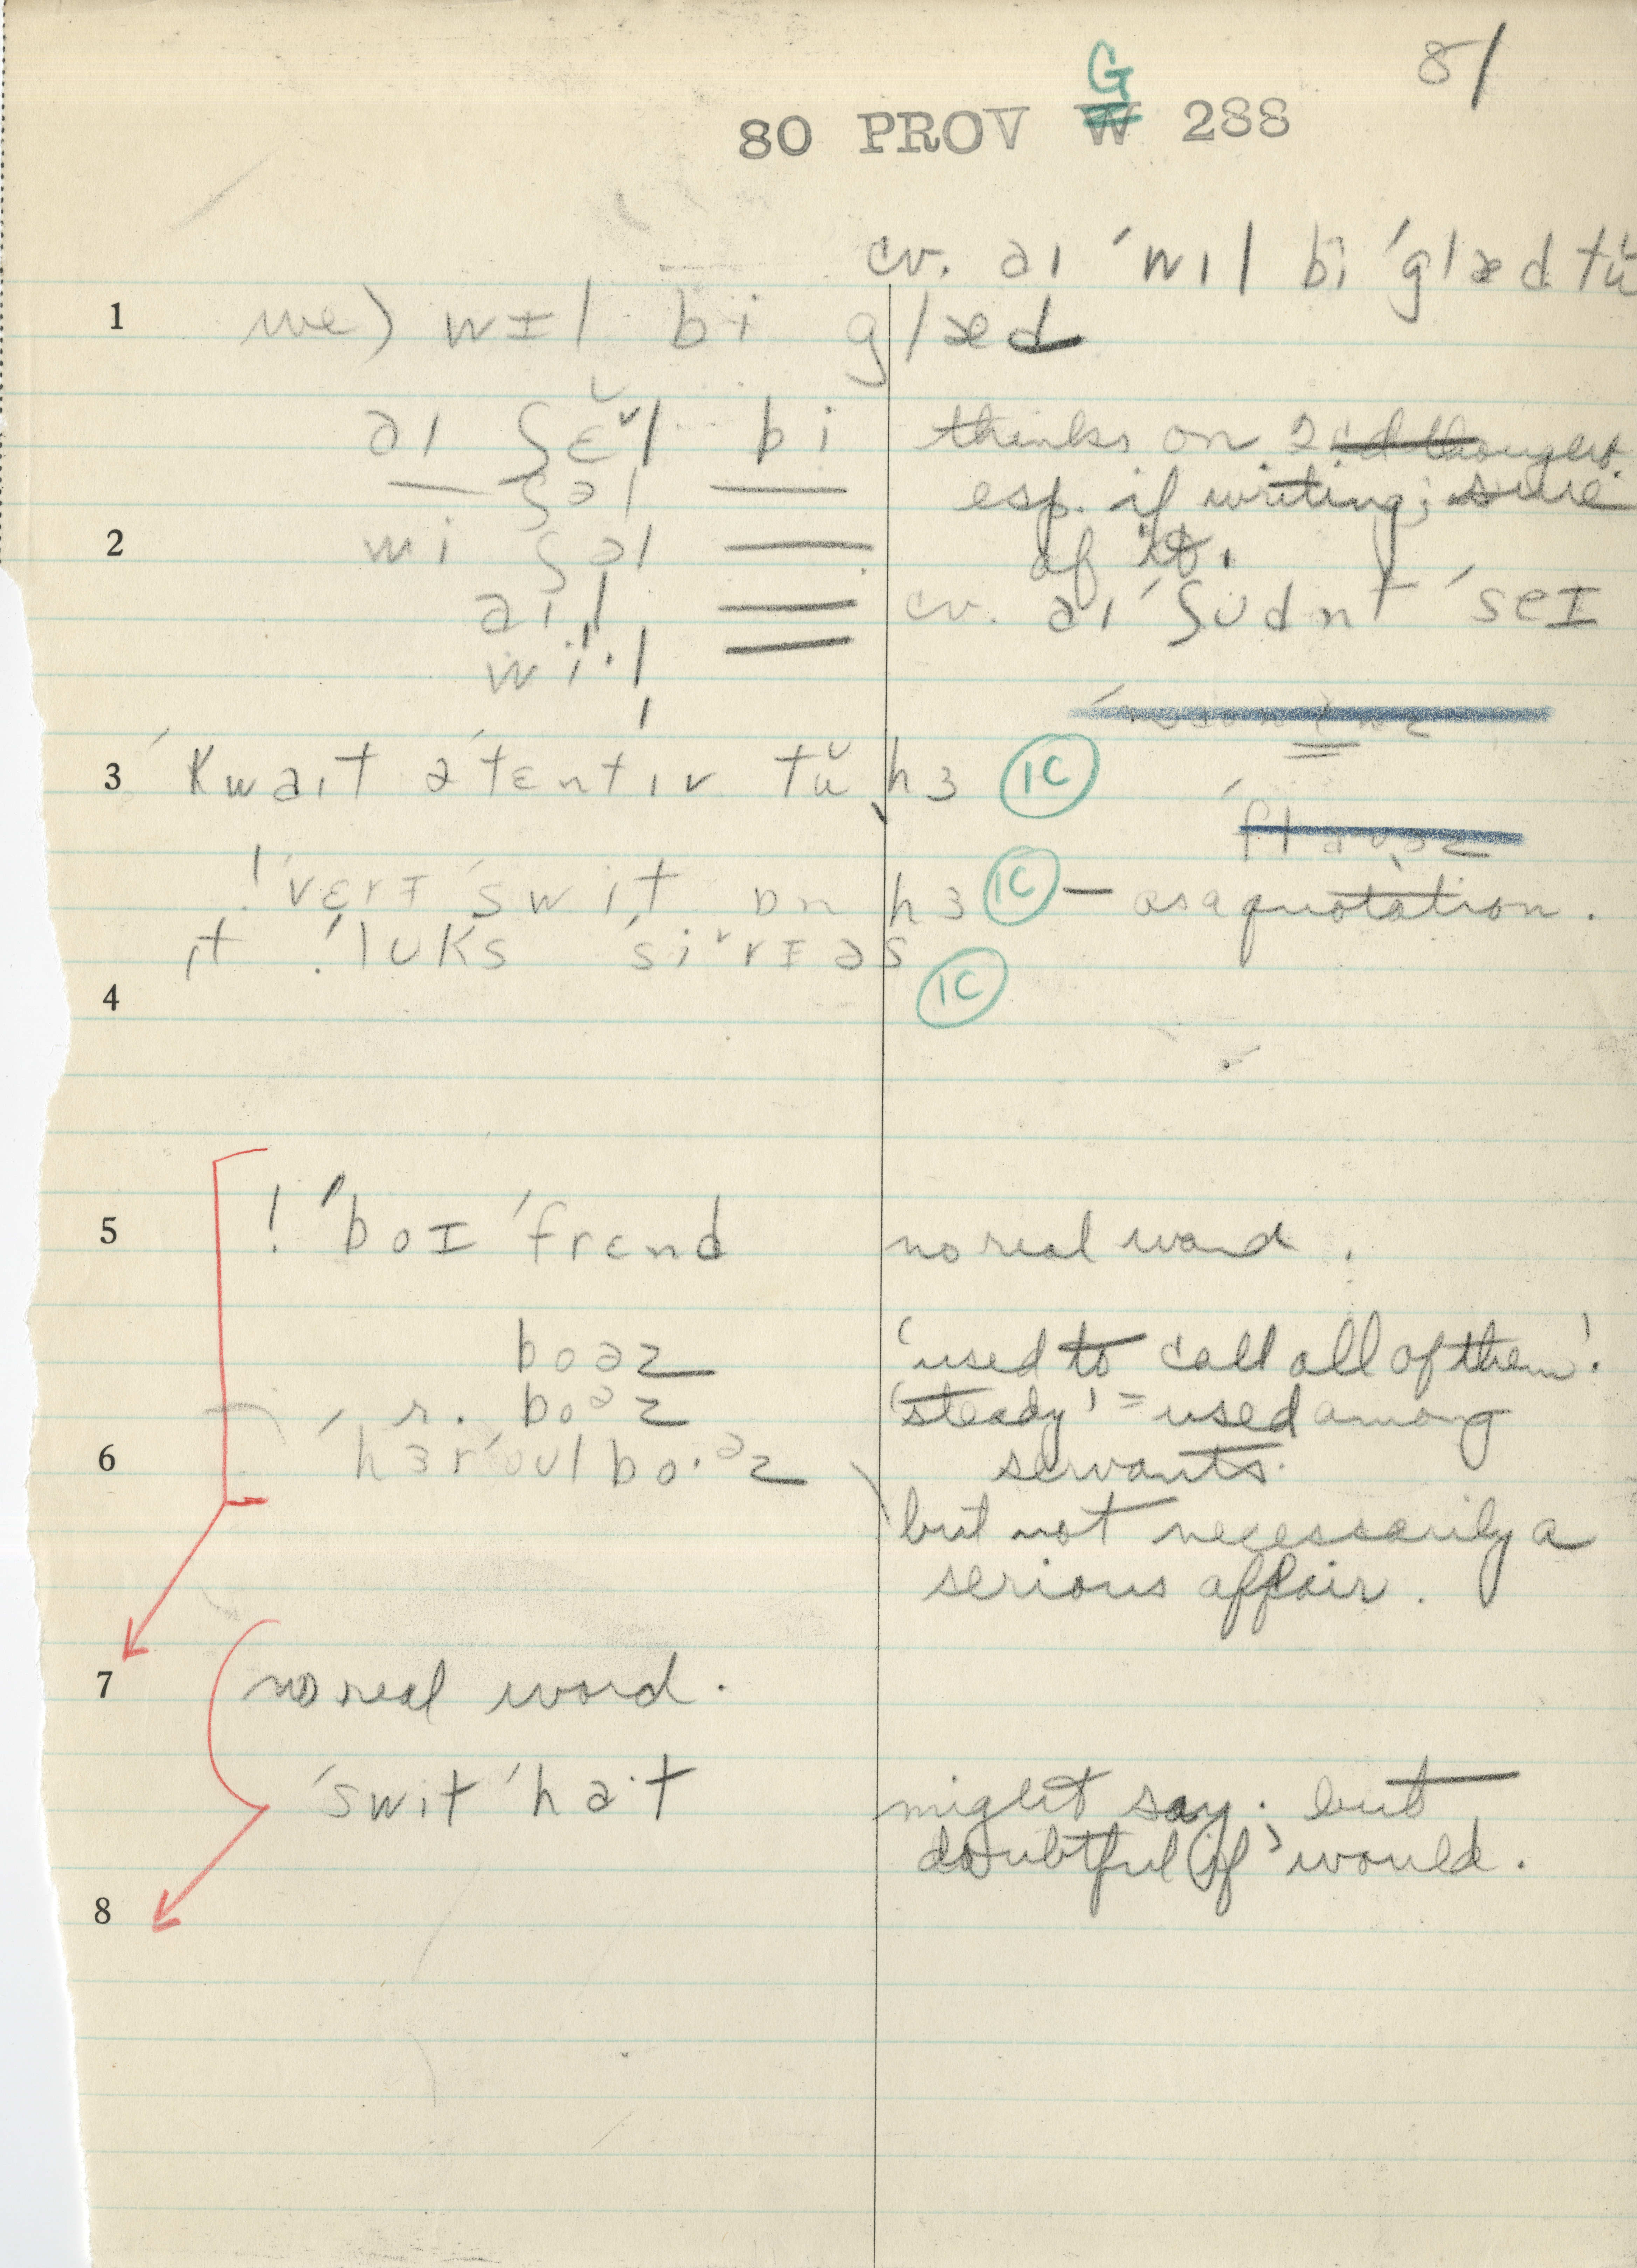 81
G
80 PROV W 288
cv. aɪ ˈwɪl bi ˈglæd tŭ
1 we) wɪl bi glæd
aɪ ʃɛ̆ˇl bi thinks on 2nd thought
— ʃəl — esp. if writing; sure
2 wi ʃəl — of it.
aɪl — cv. aɪ ˈʃʊdnt ˈseɪ
wiˑl —
3 ˈkwaɪt əˈtɛntɪv tŭ hɜ 1C
! ˈvɛrɪ ˈswit ɒn hɜ 1C — as a quotation.
ɪt ! ˈlʊks ˈsiˇrɪəs 1C
4
5 ! ˈboɪ ˈfrɛnd no real word.
boəz 'used to call all of them'.
r. boəz 'steady' = used among
6 ˈhɜr ˈoʊl boˑəz servants.
but not necessarily a
serious affair.
7 no real word.
ˈswit ˈhaˑt might say; but
doubtful if would.
8